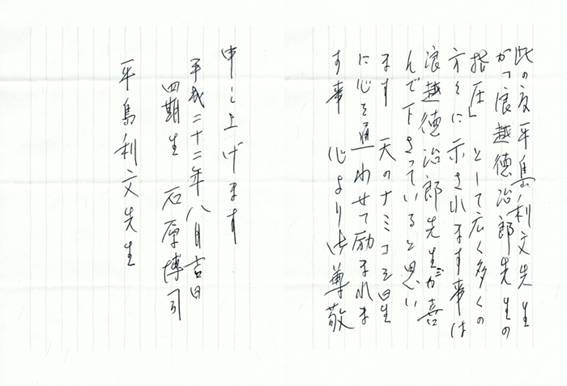 此の度平島利文先生
がつ浪越徳治郎先生の
指圧」として広く多くの
方々に示されます事は
浪越徳治郎先生が喜
んで下さっていると思い
ます 天のナミコシ星
に心を通わせて励まれま
す事 心より御尊敬
申し上げます
平成二十二年八月吉日
四期生 石原博司
平島利文先生